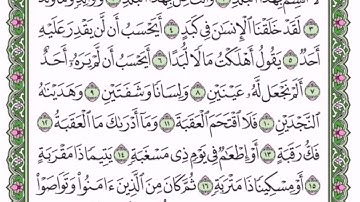 لَقَدْ خَلَقْنَا ٱلْإِنسَـٰنَ فِى كَبَدٍ ٤ أَيَحْسَبُ أَن لَّن يَقْدِرَ عَلَيْهِ
أَحَدٌ ٥ يَقُولُ أَهْلَكْتُ مَالًا لُّبَدًا ٦ أَيَحْسَبُ أَن لَّمْ يَرَهُۥٓ أَحَدٌ
٧ أَلَمْ نَجْعَل لَّهُۥ عَيْنَيْنِ ٨ وَلِسَانًا وَشَفَتَيْنِ ٩ وَهَدَيْنَـٰهُ
ٱلنَّجْدَيْنِ ١٠ فَلَا ٱقْتَحَمَ ٱلْعَقَبَةَ ١١ وَمَآ أَدْرَىٰكَ مَا ٱلْعَقَبَةُ ١٢
فَكُّ رَقَبَةٍ ١٣ أَوْ إِطْعَـٰمٌ فِى يَوْمٍ ذِى مَسْغَبَةٍ ١٤ يَتِيمًا ذَا مَقْرَبَةٍ
١٥ أَوْ مِسْكِينًا ذَا مَتْرَبَةٍ ١٦ ثُمَّ كَانَ مِنَ ٱلَّذِينَ ءَامَنُوا۟ وَتَوَاصَوْا۟